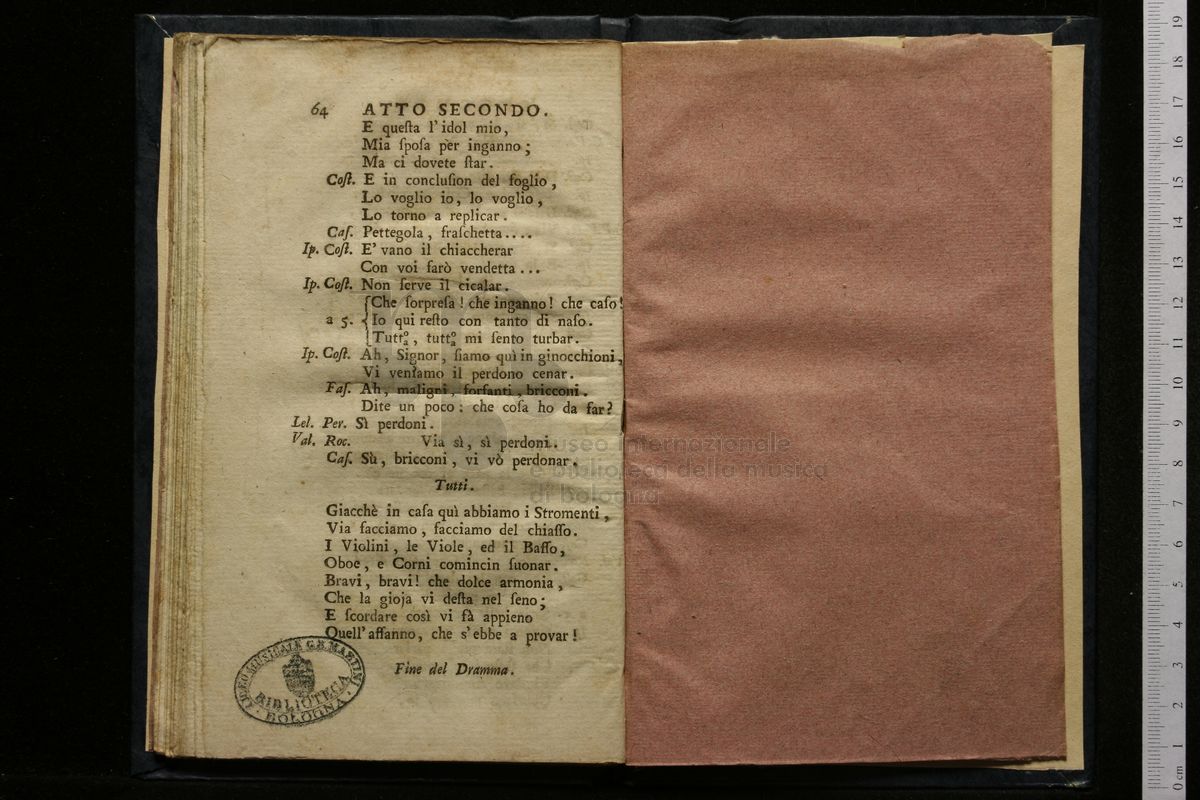 64 ATTO SECONDO.
E queſta l'idol mio,
Mia ſpoſa per inganno;
Ma ci dovete ſtar.
Coſt. E in concluſion del foglio,
Lo voglio io, lo voglio,
Lo torno a replicar.
Caſ. Pettegola, fraſchetta....
Ip. Coſt. E' vano il chiaccherar
Con voi farò vendetta...
Ip. Coſt. Non ſerve il cicalar.
Che ſorpreſa! che inganno! che caſo!
a 5. Io qui reſto con tanto di naſo.
Tuttoa, tuttoa mi ſento turbar.
Ip. Coſt. Ah, Signor, ſiamo quì in ginocchioni,
Vi veniamo il perdono cenar.
Faſ. Ah, maligni, forfanti, bricconi.
Dite un poco: che coſa ho da far?
Lel. Per. Sì perdoni.
Val. Roc. Via sì, sì perdoni.
Caſ. Sù, bricconi, vi vò perdonar.
Tutti.
Giacchè in caſa quì abbiamo i Stromenti,
Via facciamo, facciamo del chiaſſo.
I Violini, le Viole, ed il Baſſo,
Oboe, e Corni comincin ſuonar.
Bravi, bravi! che dolce armonia,
Che la gioja vi deſta nel ſeno;
E ſcordare così vi fà appieno
Quell'affanno, che s'ebbe a provar!
Fine del Dramma.
LICEO MUSICALE G.B. MARTINI
BIBLIOTECA
BOLOGNA
museo internazionale
e biblioteca della musica
di bologna
0 cm 1 2 3 4 5 6 7 8 9 10 11 12 13 14 15 16 17 18 19